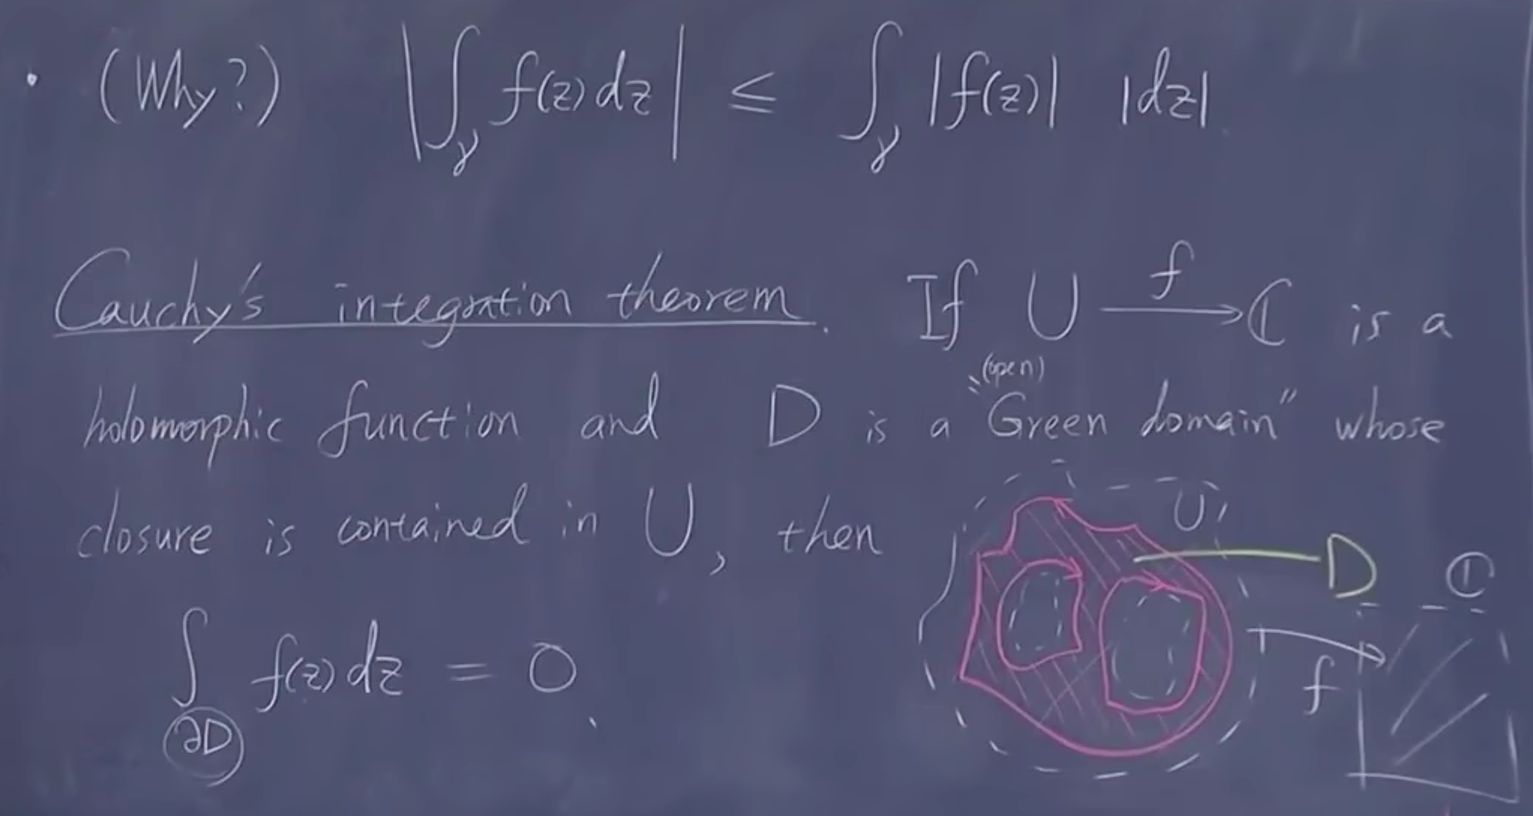 · (Why?) |∫_γ f(z) dz| ≤ ∫_γ |f(z)| |dz|.
Cauchy's integration theorem. If U —f→ ℂ is a
(open)
holomorphic function and D is a "Green domain" whose
closure is contained in U, then
∫_∂D f(z) dz = 0.
U
D
ℂ
f